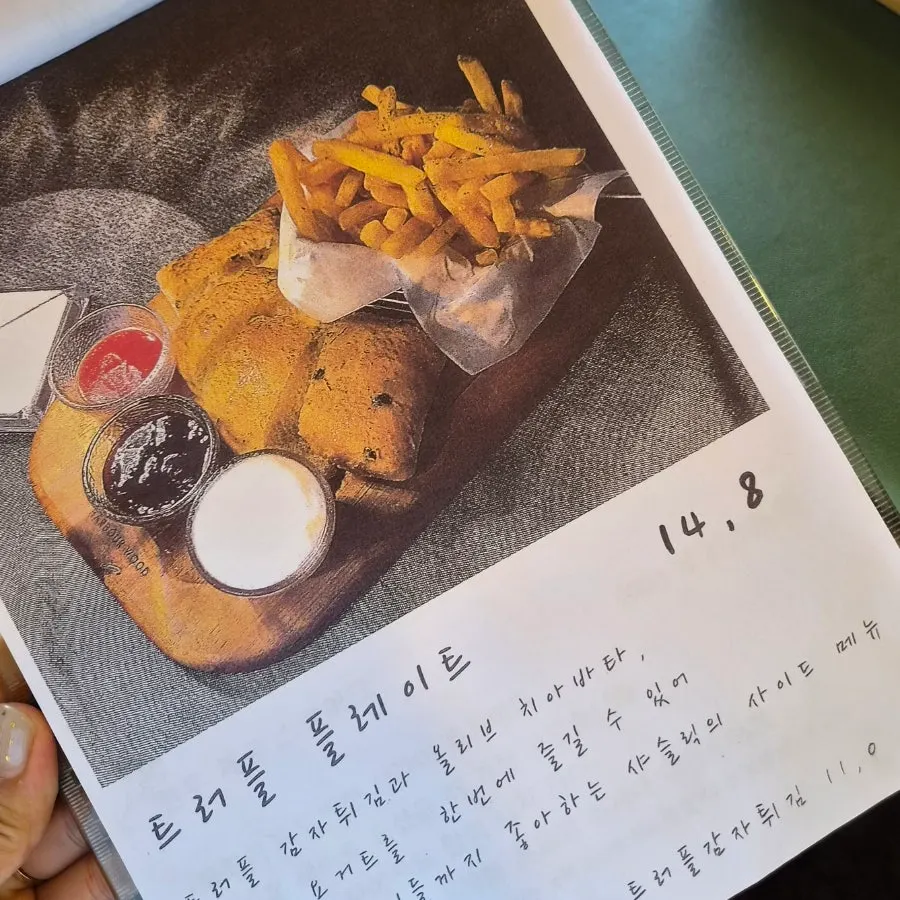 14.8
트러플 플레이트
트러플 감자튀김과 올리브 치아바타,
요거트를 한번에 즐길 수 있어
들까지 좋아하는 샤슬릭의 사이드 메뉴
트러플감자튀김 11,0